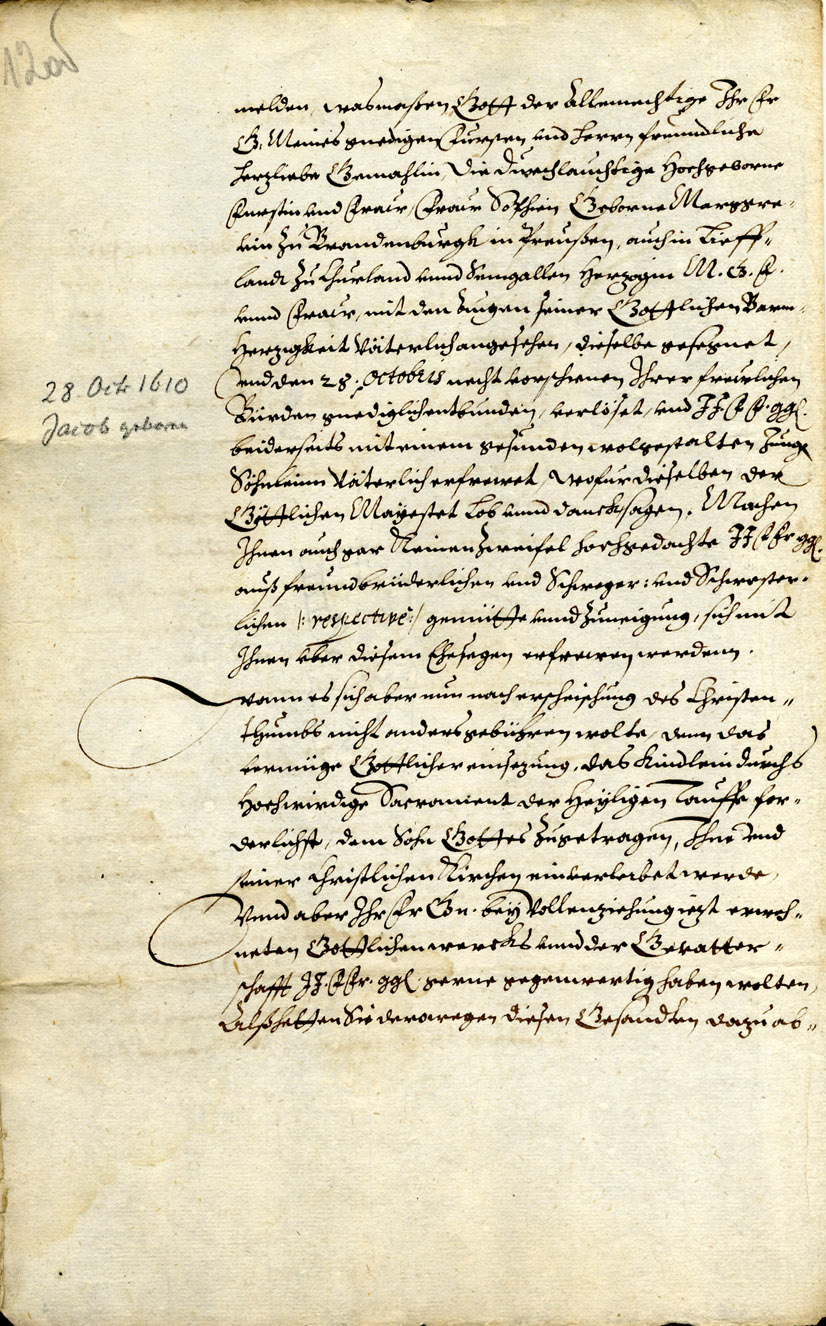 120
melden, wasmaßen Gott der Allemechtige Ihr Fr
G. Meines gnedigen Fursten und Herrn freundliche
herzliebe Gemahlin, Die Durchlauchtige Hochgeborne
Furstin und Fraw, Fraw Sophien Geborne Marggre-
uin Zu Brandenburgk in Preußen, auch in Lieff-
landt Zu Churland unnd Semgallen Herzogin M. G. F.
unnd Fraw, mit den Augen seiner Göttlichen Barm-
herzigkeit Väterlich angesehen, dieselbe gesegnet,
und den 28. Octobris necht vorschienen Ihrer frewlichen
Bürden gnediglich entbunden, verlöset, und II F F. ggl.
beiderseits mit einem gesunden wolgestalten Junge
Söhnleinn Väterlich erfrewet, wofur dieselben der
Göttlichen Mayestet Lob unnd dancksagen. Machen
Ihnen auch gar Keinen Zweifel hochgedachte II F Fr ggl.
auß freundbrüderlichen und Schweger: und Schwester-
lichen /: respective :/ gemütte unnd Zuneigung, sich mit
Ihnen über diesem Ehesegen erfrewen werdenn.
Wann es sich aber nun nach erheischung des Christen-
thumbs nicht anders gebühren wolte, denn das
vermüge Göttlicher einsezung, das Kindlein durchs
Hochwirdige Sacrament der Heyligen Tauffe for-
derlichst, dem Sohn Gottes Zugetragen, Ihme und
seiner Christlichen Kirchen einverleibet werde,
Unnd aber Ihr Fr Gn. bey Vollenziehung izt erweh-
neten Göttlichen wercks unnd der Gevatter-
schafft II. F Fr. ggl. gerne gegenwertig haben wolten,
Alß hetten Sie derowegen diesen Gesandten dazu ab-
28. Octr 1610
Jacob geboren